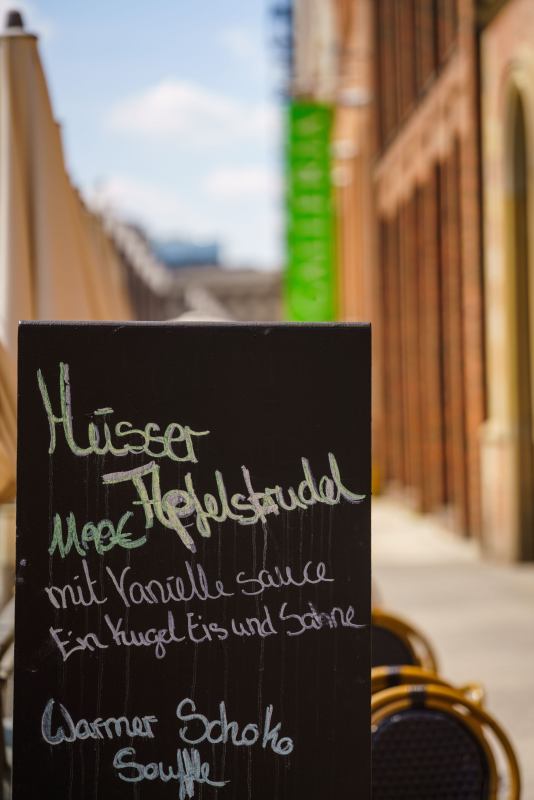 Heisser
Apfelstrudel
mit Vanielle sauce
Ein Kugel Eis und Sahne
Warmer Schoko
Souffle